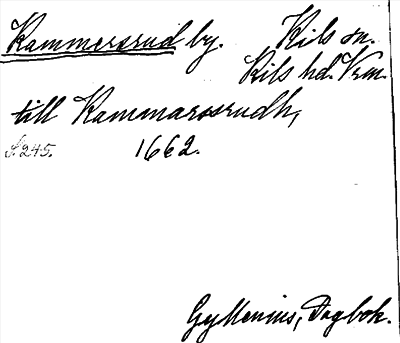 Kammersrud by. Kils sn.
Kils hd. Vrm.
till Kammarssrudh,
S. 245. 1662.
Gyllenius, Dagbok.